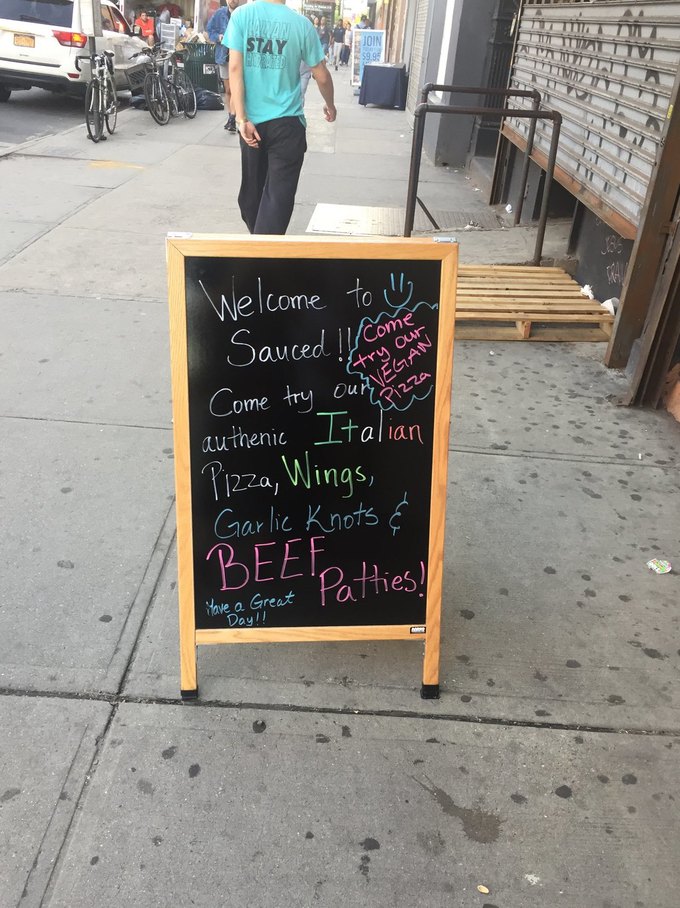 STAY
JOIN
$9.95
Welcome to
Sauced!!
Come
try our
VEGAN
Pizza
Come try our
authenic Italian
Pizza, Wings,
Garlic Knots &
BEEF
Patties!
Have a Great
Day!!